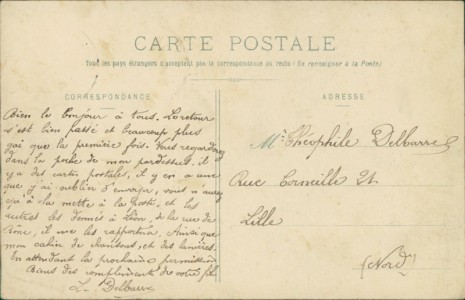 CARTE POSTALE
Tous les pays étrangers n'acceptent pas la correspondance au recto (Se renseigner à la Poste)
CORRESPONDANCE
Bien le bonjour à tous. Le retour
s'est bien passé et beaucoup plus
gai que la première fois. Vous regarderez
dans la poche de mon pardessus, il
y a des cartes postales, il y en a une
que j'ai oublié d'envoyer, vous n'aurez
qu'à la mettre à la Poste, et les
autres les donner à Léon, de la rue de
il me les rapportera. Ainsi que
mon cahier de chansons, et des lanières.
En attendant la prochaine permission
Bons des compliments de votre fils
L. Delbarre
ADRESSE
Mr Théophile Delbarre
Rue Corneille 21.
Lille
(Nord)